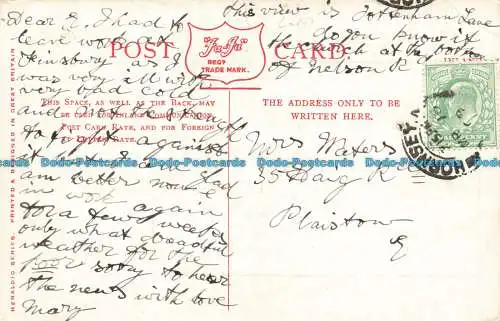 Dear E, I had to
leave work at
Finsbury as I
was very ill with
very bad cold
and not fit
to again
it I am glad
am better now
in work
for a few weeks again
only what dreadful
weather for the
poor sorry to hear
the news with love
Mary
This view is Tottenham Lane
do you know it
the church at the bottom
of Nelson R
POST CARD.
"Ja-Ja"
REGD
TRADE MARK.
THIS SPACE, AS WELL AS THE BACK, MAY
BE USED FOR INLAND COMMUNICATION
POST CARD RATE, AND FOR FOREIGN
AT LETTER RATE.
THE ADDRESS ONLY TO BE
WRITTEN HERE.
Mrs Waters
35 R
Plaistow
E
HERALDIC SERIES. PRINTED & DESIGNED IN GREAT BRITAIN
Dodo-Postcards Dodo-Postcards Dodo-Postcards Dodo-Postcards Dodo-Postcards